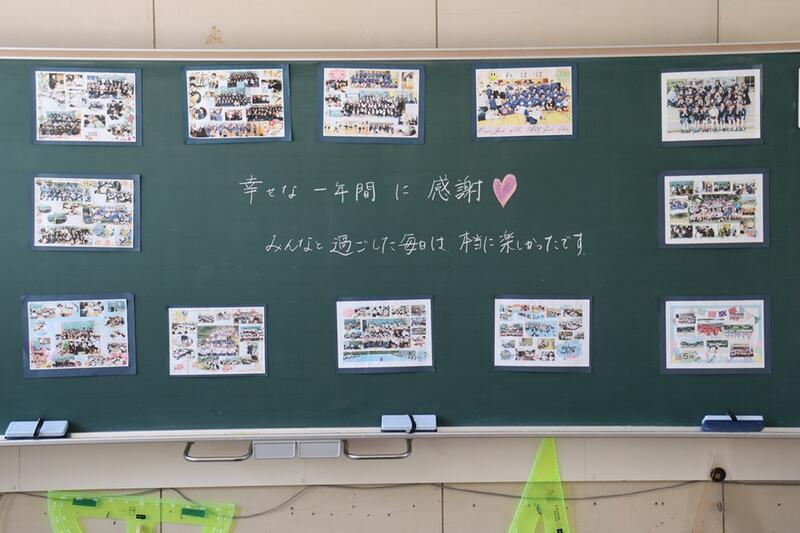 幸せな 一年間 に 感謝
みんなと過ごした毎日は、本当に楽しかったです。
One for all, All for one
5月